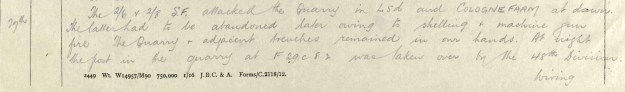 29th
The 2/6 & 2/8 S.F. attacked the Quarry in L5d and COLOGNE FARM at dawn.
The latter had to be abandoned later owing to shelling & machine gun
fire. The Quarry & adjacent trenches remained in our hands. At night
the post in the quarry at F 29 c 8.2 was taken over by the 40th Division.
2449 Wt. W14957/M90 750,000 1/16 J.B.C. & A. Forms/C.2118/12.